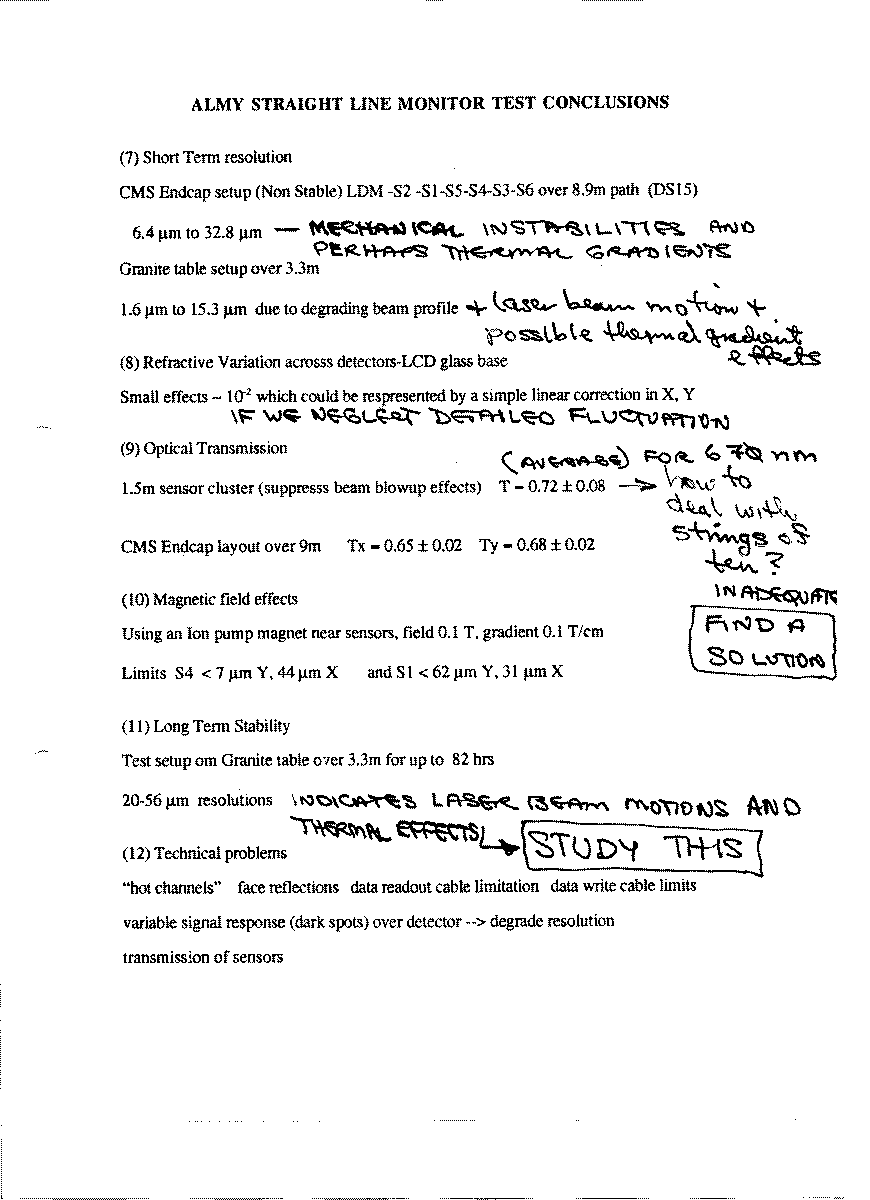 ALMY STRAIGHT LINE MONITOR TEST CONCLUSIONS
(7) Short Term resolution
CMS Endcap setup (Non Stable) LDM -S2 -S1-S5-S4-S3-S6 over 8.9m path (DS15)
6.4 µm to 32.8 µm — MECHANICAL INSTABILITIES AND
PERHAPS THERMAL GRADIENTS
Granite table setup over 3.3m
1.6 µm to 15.3 µm due to degrading beam profile + laser beam motion +
possible thermal gradient
effects
(8) Refractive Variation acrosss detectors-LCD glass base
Small effects ~ 10⁻² which could be respresented by a simple linear correction in X, Y
IF WE NEGLECT DETAILED FLUCTUATION
(9) Optical Transmission
(AVERAGE) FOR 670 nm
1.5m sensor cluster (suppresss beam blowup effects) T = 0.72 ± 0.08 → how to
deal with
strings of
ten?
CMS Endcap layout over 9m Tx = 0.65 ± 0.02 Ty = 0.68 ± 0.02
INADEQUATE
(10) Magnetic field effects
FIND A
SOLUTION
Using an Ion pump magnet near sensors, field 0.1 T, gradient 0.1 T/cm
Limits S4 < 7 µm Y, 44 µm X and S1 < 62 µm Y, 31 µm X
(11) Long Term Stability
Test setup om Granite table over 3.3m for up to 82 hrs
20-56 µm resolutions INDICATES LASER BEAM MOTIONS AND
THERMAL EFFECTS → STUDY THIS
(12) Technical problems
“hot channels” face reflections data readout cable limitation data write cable limits
variable signal response (dark spots) over detector --> degrade resolution
transmission of sensors